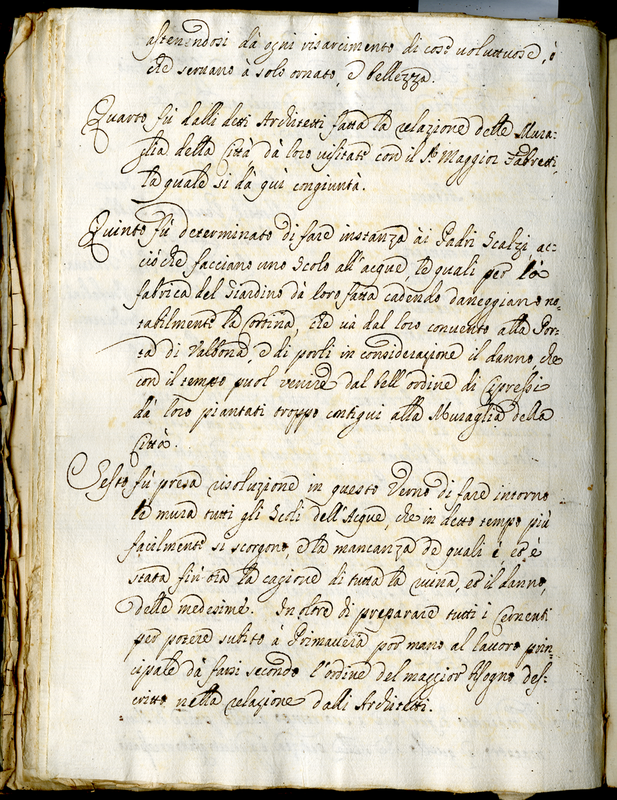 astenendosi dà ogni risarcimento di cose voluttuose, ò
che servano à solo ornato, e bellezza.
Quarto fù dalli detti Architetti fatta la relazione delle Mura-
glia della Città dà loro visitate con il Sr Maggior Fabretti,
la quale si dà quì congiunta.
Quinto fù determinato di fare instanza ài Padri Scalzi, ac-
ciò che facciano uno Scolo all'acque, le quali per la
fabrica del Giardino dà loro fatta cadendo daneggiano no-
tabilmente la Cortina, che và dal loro convento alla Por-
ta di Valbona, e di porli in considerazione il danno che
con il tempo puol venire dal bell'ordine di Cipressi
dà loro piantati troppo contigui alla Muraglia della
Città.
Sesto fù presa risoluzione in questo Verno di fare intorno
le mura tutti gli Scoli dell'Acque, che in detto tempo più
facilmente si scorgono, e la mancanza de quali è et è
stata fin'ora la cagione di tutta la ruina, et il danno,
delle medesime. In oltre di preparare tutti i Cementi
per potere subito à Primavera por mano al lavoro prin-
cipale dà farsi secondo l'ordine del maggior bisogno des-
critto nella relazione dalli Architetti.